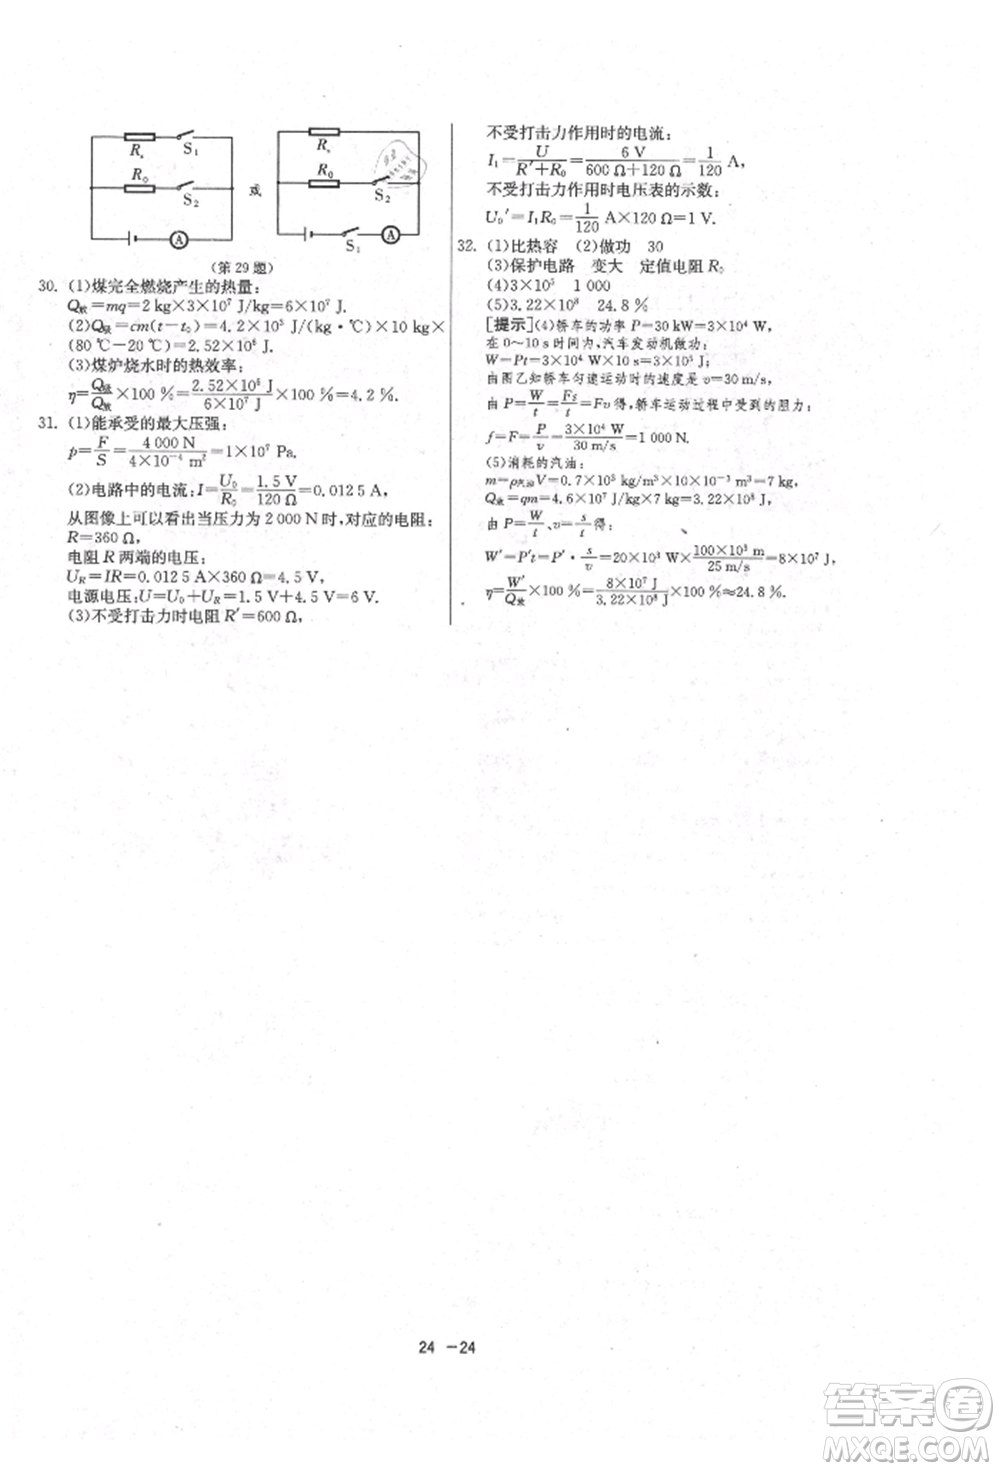 Rₓ S₁
R₀ S₂
A
或
Rₓ
R₀
S₂
S₁ A
(第29题)
30. (1)煤完全燃烧产生的热量:
Q放=mq=2 kg×3×10⁷ J/kg=6×10⁷ J.
(2)Q吸=cm(t-t₀)=4.2×10³ J/(kg·℃)×10 kg×
(80 ℃-20 ℃)=2.52×10⁶ J.
(3)煤炉烧水时的热效率:
η=Q吸/Q放×100 %=2.52×10⁶ J/6×10⁷ J×100 %=4.2 %.
31. (1)能承受的最大压强:
p=F/S=4 000 N/4×10⁻⁴ m²=1×10⁷ Pa.
(2)电路中的电流:I=U₀/R₀=1.5 V/120 Ω=0.012 5 A.
从图像上可以看出当压力为2 000 N时,对应的电阻:
R=360 Ω,
电阻 R 两端的电压:
U_R=IR=0.012 5 A×360 Ω=4.5 V,
电源电压:U=U₀+U_R=1.5 V+4.5 V=6 V.
(3)不受打击力时电阻 R′=600 Ω,
不受打击力作用时的电流:
I₁=U/(R′+R₀)=6 V/(600 Ω+120 Ω)=1/120 A,
不受打击力作用时电压表的示数:
U₀′=I₁R₀=1/120 A×120 Ω=1 V.
32. (1)比热容 (2)做功 30
(3)保护电路 变大 定值电阻 R₀
(4)3×10⁵ 1 000
(5)3.22×10⁸ 24.8 %
[提示](4)轿车的功率 P=30 kW=3×10⁴ W,
在 0~10 s 时间内,汽车发动机做功:
W=Pt=3×10⁴ W×10 s=3×10⁵ J;
由图乙知轿车匀速运动时的速度是 v=30 m/s,
由 P=W/t=Fs/t=Fv得,轿车运动过程中受到的阻力:
f=F=P/v=3×10⁴ W/30 m/s=1 000 N.
(5)消耗的汽油:
m=ρ汽油V=0.7×10³ kg/m³×10×10⁻³ m³=7 kg,
Q放=qm=4.6×10⁷ J/kg×7 kg=3.22×10⁸ J,
由 P=W/t、v=s/t得:
W′=P′t=P′·s/v=20×10³ W×100×10³ m/25 m/s=8×10⁷ J,
η=W′/Q放×100 %=8×10⁷ J/3.22×10⁸ J×100 %≈24.8 %.
24 -24
答案圈
MXQE.COM